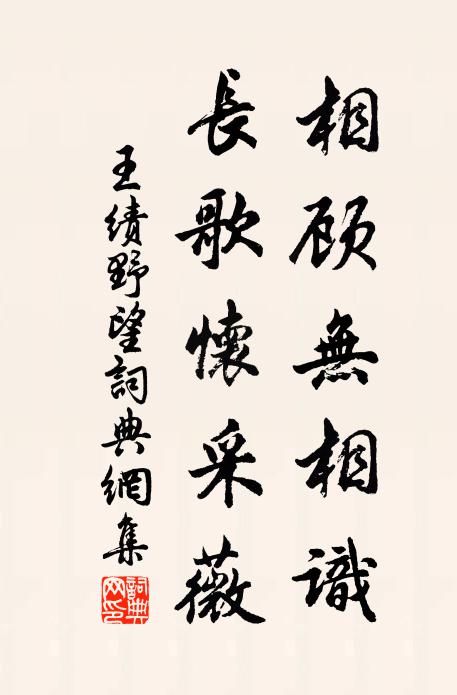 相顾無相識
長歌懷采薇
王績野望詞典網集
詞典网印